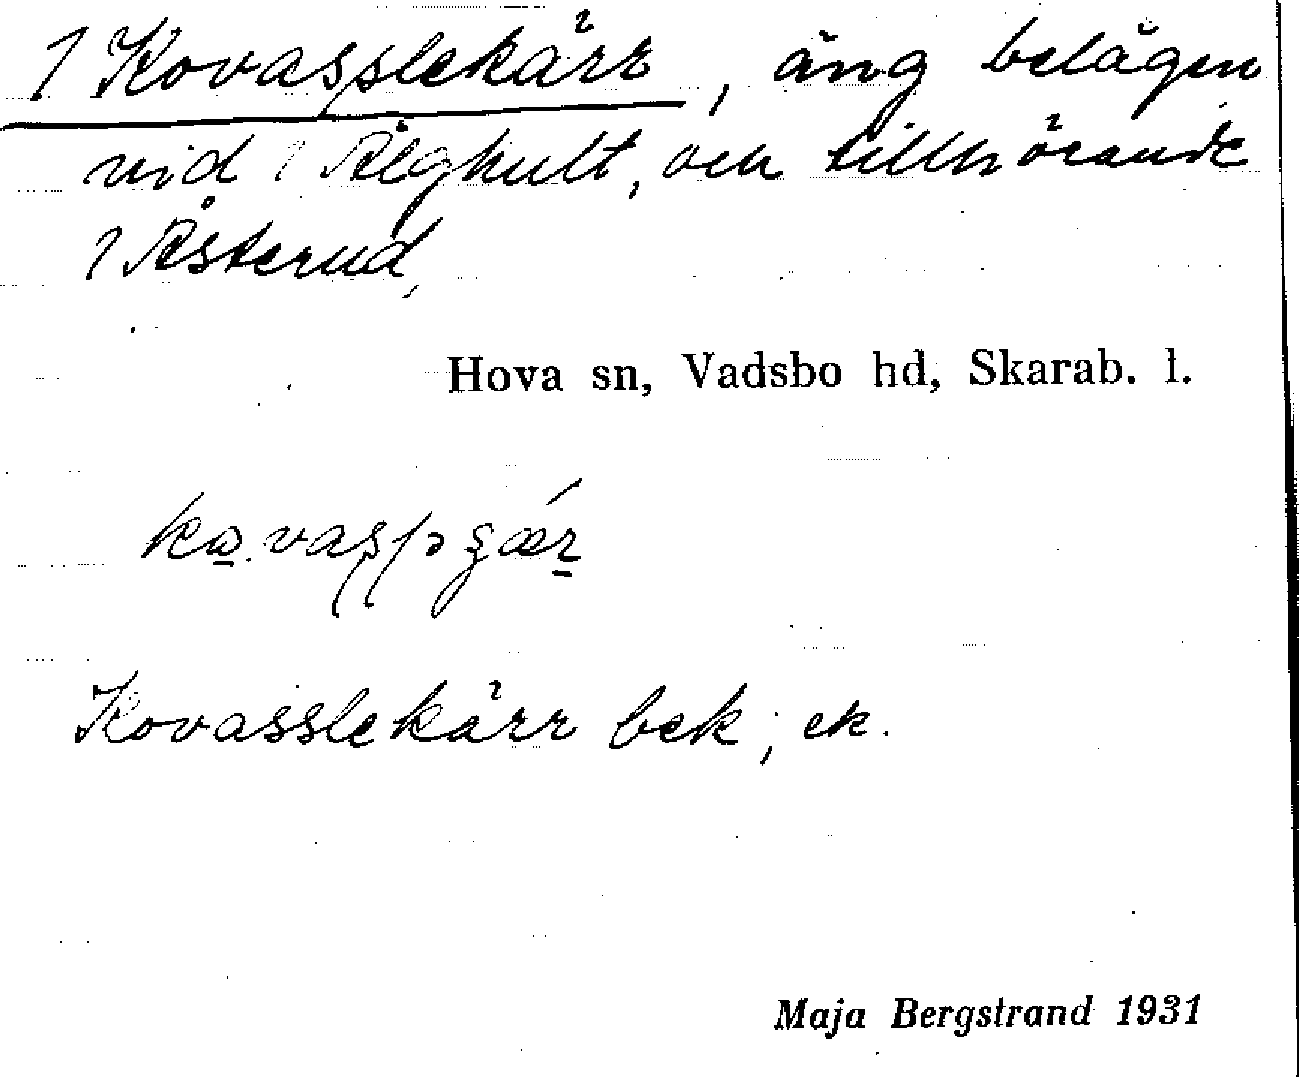 1 Kovasslekärr, äng belägen
vid 1 Älghult, och tillhörande
1 Åsterud,
Hova sn, Vadsbo hd, Skarab. l.
Kovasslekärr bek; ek.
Maja Bergstrand 1931